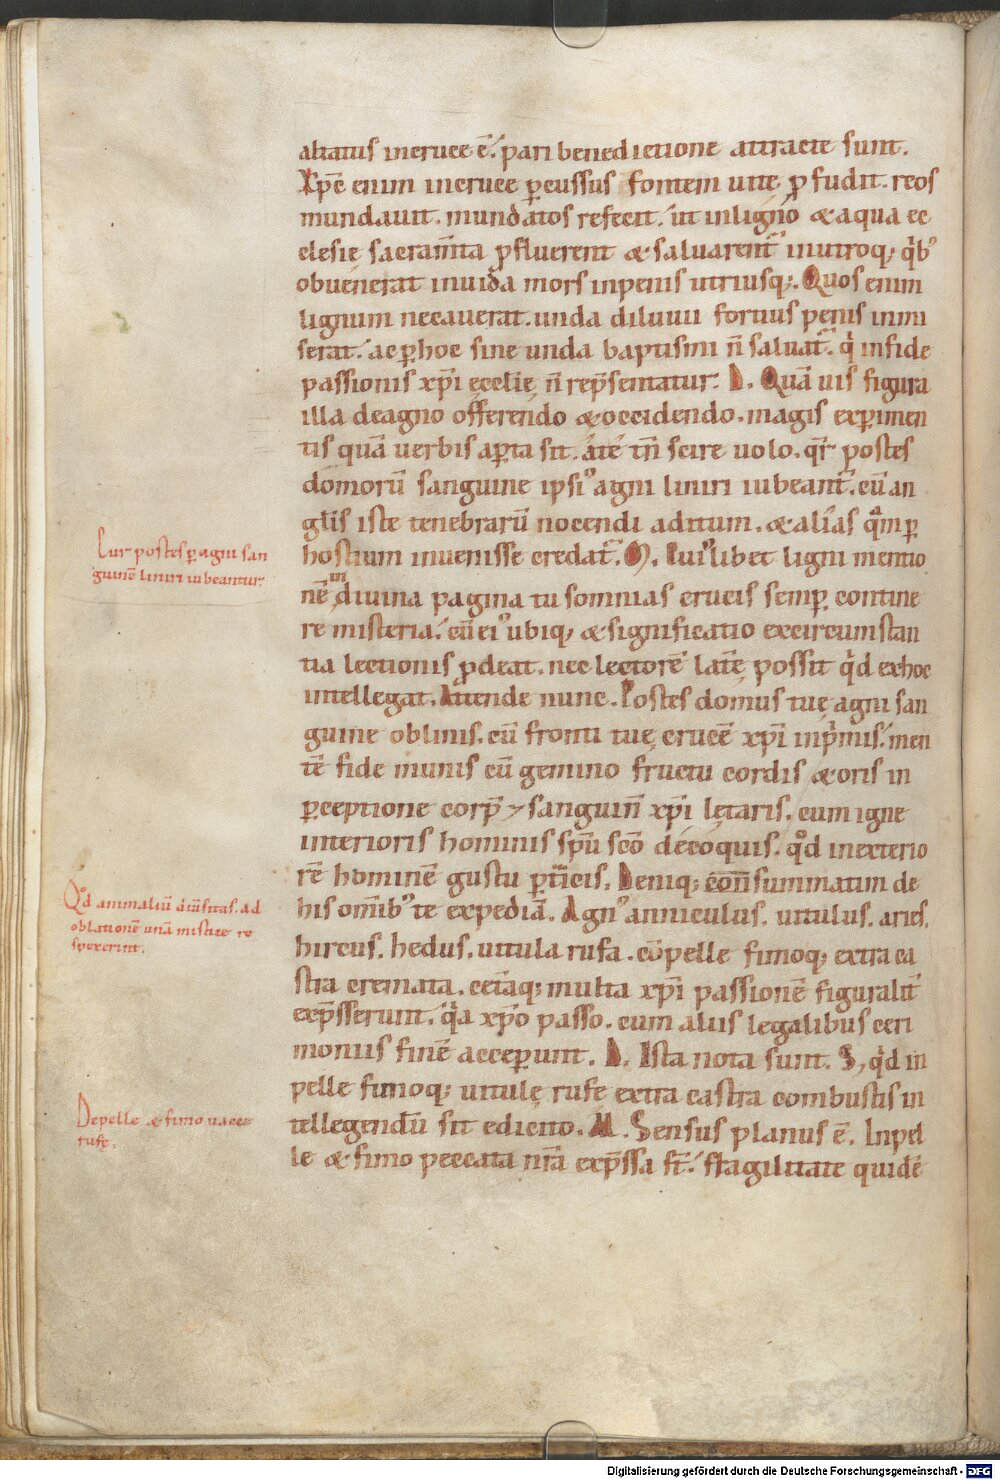 altatus incruce ē. pari benedictione attracte sunt.
Xp̄c enim incruce ꝑcussus fontem uitę ꝓfudit. reos
mundauit. mundatos refecit. ut inligno & aqua ec
clesię sacram̄ta ꝓfluerent & saluarent᷑ inutroq; qͥbꝰ
obuenerat inuida mors inpenis utriusq;. Quos enim
lignum necauerat. unda diluuii fortius penis inmi
serat. ac ꝑhoc sine unda baptismi n̄ saluat᷑. qͥ infide
passionis xp̄i ęcclię n̄ rep̄sentatur. D. Quā uis figura
illa deagno offerendo & occidendo. magis exꝑimen
tis quā uerbis aꝑta sit. a te tn̄ scire uolo. qr̄ postes
domorū sanguine ipsiꝰ agni liniri iubeant᷑. cū an
gl̄is iste tenebrarū nocendi aditum. & alias qᵃm ꝑ
hostium inuenisse credat᷑. M. Cuiꝰlibet ligni mentio
nē in diuina pagina tu somnias crucis semꝑ contine
re misteria. cū eiꝰ ubiq; & significatio excircumstan
tia lectionis ꝓdeat. nec lectorē latē possit qͥd exhoc
intellegat. Attende nunc. Postes domus tuę agni san
guine oblinis. cū fronti tuę crucē xp̄i inpͥmis. men
tē fide munis cū gemino fructu cordis & oris in
ꝑceptione corp̄ & sanguin̄ xp̄i lętaris. cum igne
interioris hominis sp̄u sc̄o decoquis. qͦd inexterio
rē hominē gustu ꝑticis. Deniq; consummatim de
his om̄ibꝰ te expediā. Agnꝰ anniculus. uitulus. aries.
hircus. hedus. uitula rufa. cū pelle fimoq; extra ca
stra cremata. cetaq; multa xp̄i passionē figuralit᷑
exp̄sserunt. qᵃ xp̄o passo. cum aliis legalibus ceri
moniis finē acceꝑunt. D. Ista nota sunt. S; qͥd in
pelle fimoq; uitulę rufe extra castra combustis in
tellegendū sit edicito. M. Sensus planus ē. Inpel
le & fimo peccata nr̄a exp̄ssa s̄t. fragilitate quidē
Cur postes ꝑ agni san
guinē liniri iubeantur.
Qͦd animaliū diūsitas. ad
oblationē unā mistice re
spexerint.
De pelle & fimo uacce
rufę.
Digitalisierung gefördert durch die Deutsche Forschungsgemeinschaft - DFG